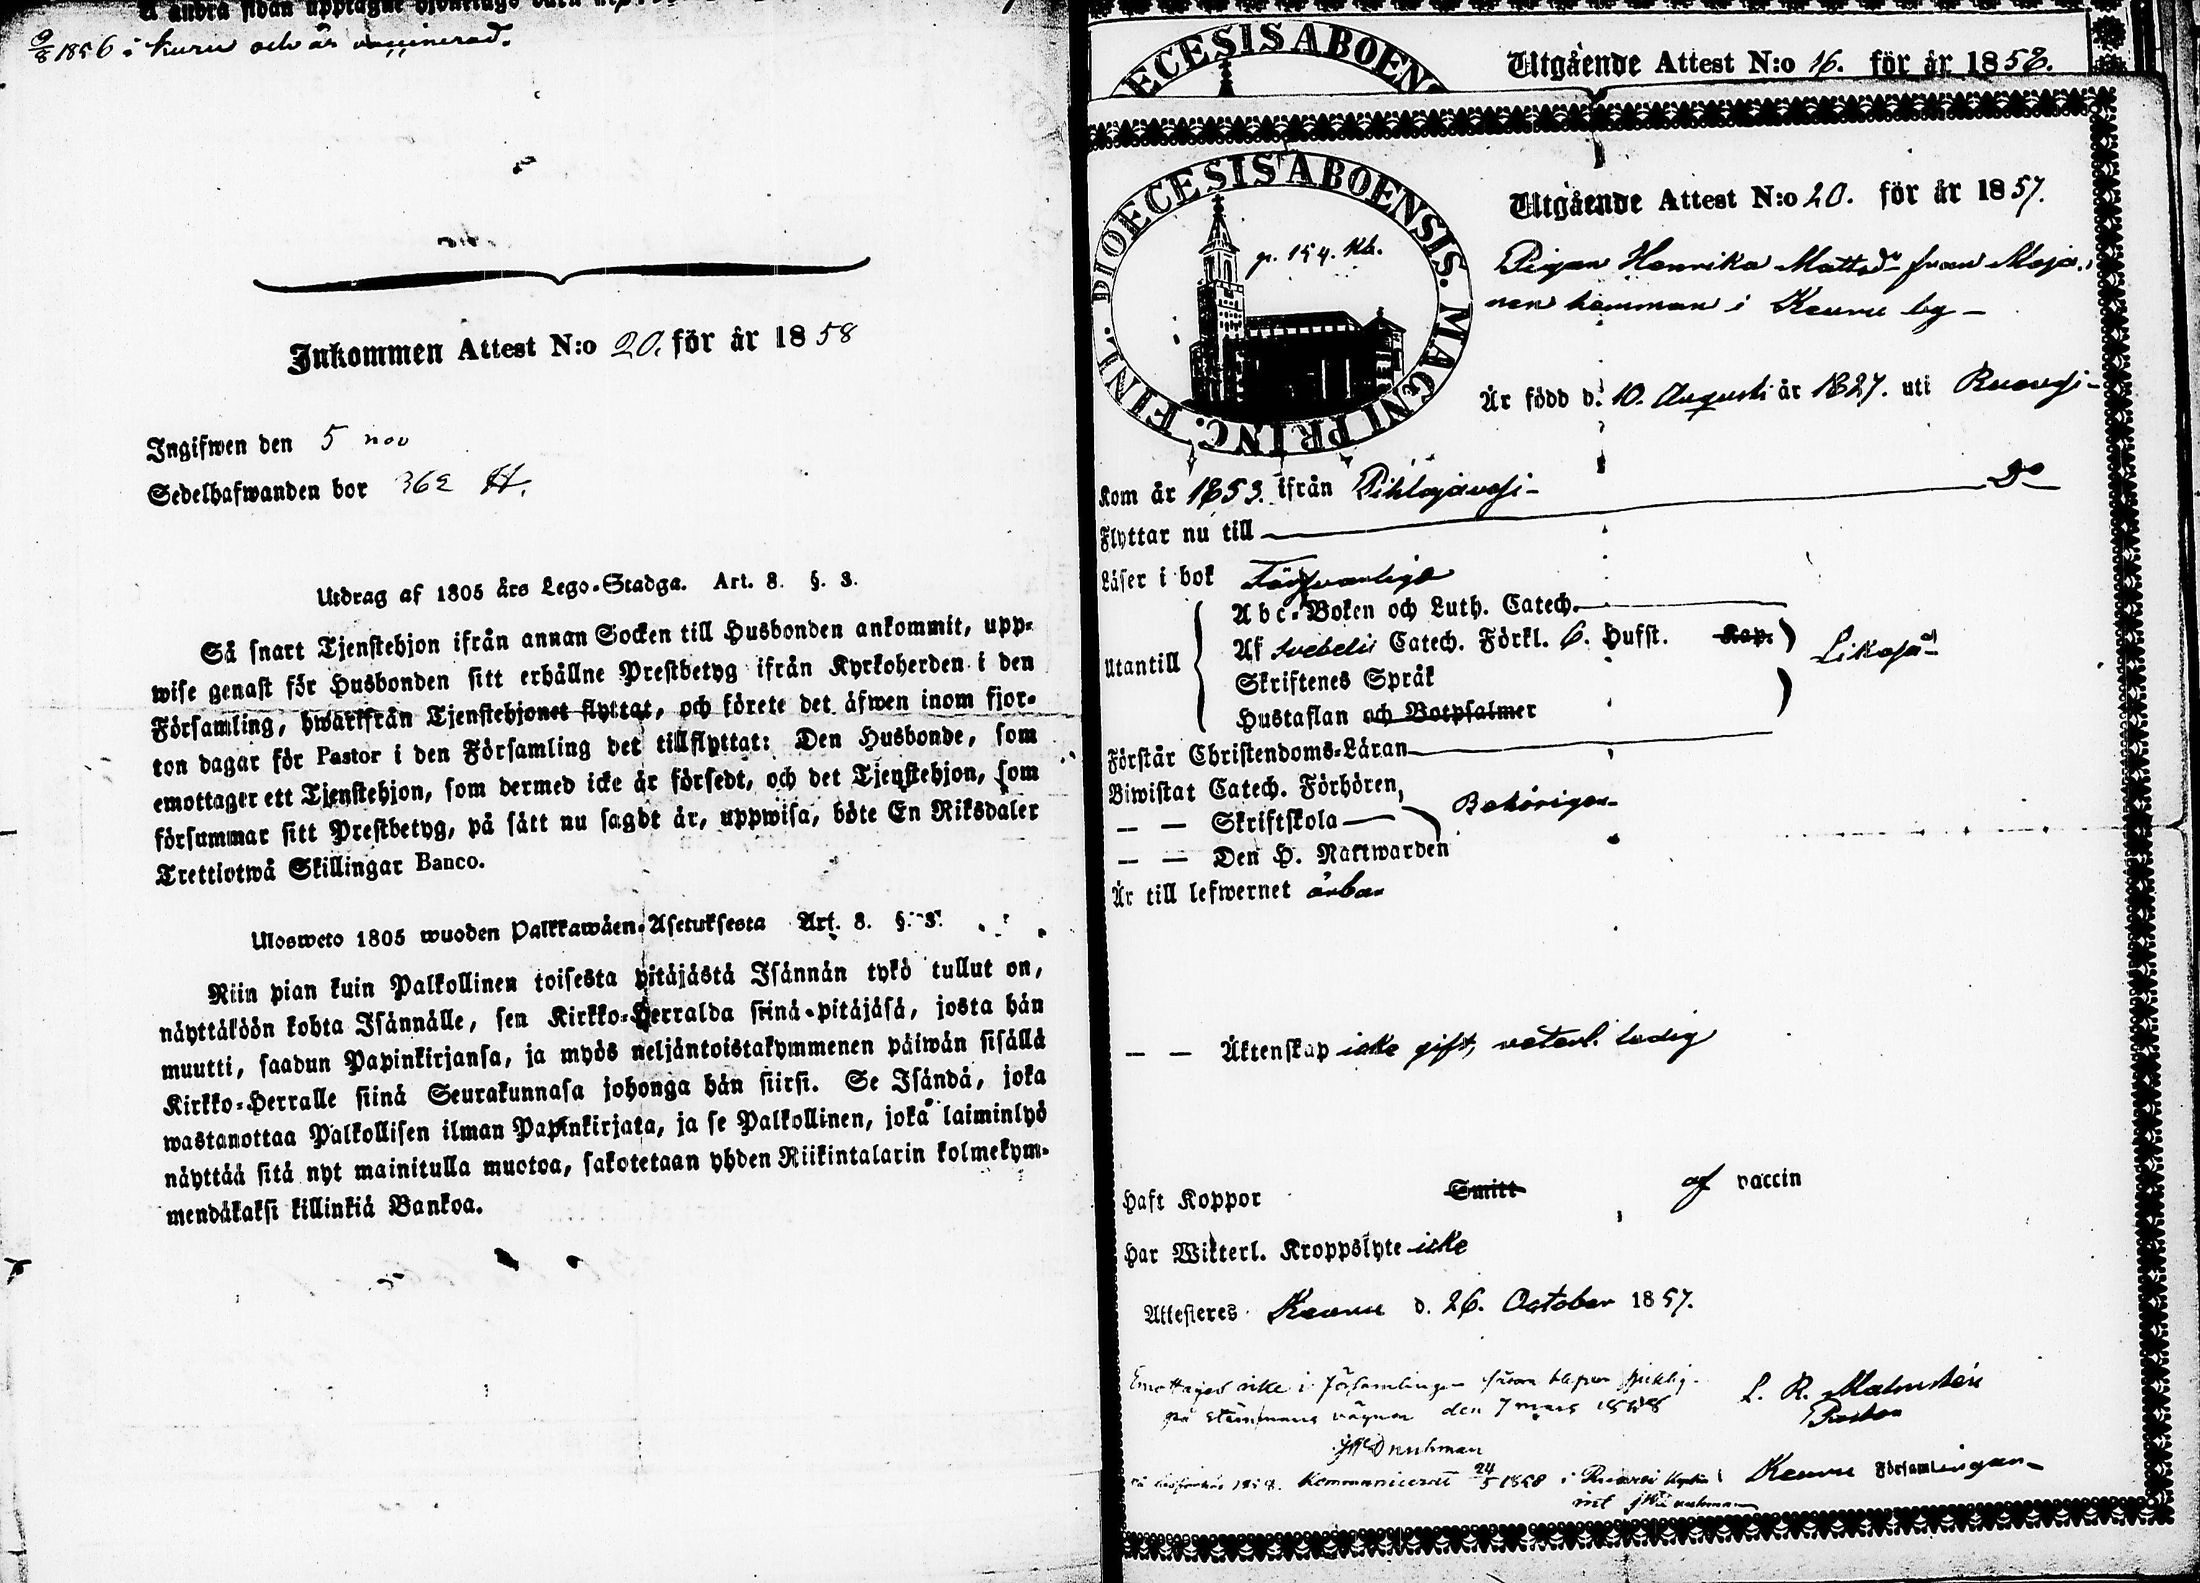 9/8 1856 i Kuru och är vaccinerad.
Inkommen Attest N:o 20. för år 1858
Ingifwen den 5 nov
Sedelhafwanden bor 362 H.
Utdrag af 1805 års Lego-Stadga. Art. 8. §. 3.
Så snart Tjenstehjon ifrån annan Socken till Husbonden ankommit, upp-
wise genast för Husbonden sitt erhållne Prestbetyg ifrån Kyrkoherden i den
Församling, hwarifrån Tjenstehjonet flyttat, och förete det äfwen inom fjor-
ton dagar för Pastor i den Församling det tillflyttat: Den Husbonde, som
emottager ett Tjenstehjon, som dermed icke är försedt, och det Tjenstehjon, som
försummar sitt Prestbetyg, på sätt nu sagdt är, uppwisa, böte En Riksdaler
Trettiotwå Skillingar Banco.
Ulosweto 1805 wuoden Palkkawäen-Asetuksesta Art. 8. §. 3.
Niin pian kuin Palkollinen toisesta pitäjästä Isännän tykö tullut on,
näyttäköön kohta Isännälle, sen Kirkko-Herralda siinä pitäjäsä, josta hän
muutti, saadun Papinkirjansa, ja myös neljäntoistakymmenen päiwän sisällä
Kirkko-Herralle siinä Seurakunnasa johonga hän siirsi. Se Isändä, joka
wastanottaa Palkollisen ilman Papinkirjata, ja se Palkollinen, joka laiminlyö
näyttää sitä nyt mainitulla muotoa, sakotetaan yhden Riikintalarin kolmekym-
mendäkaksi killinkiä Bankoa.
ECESIS ABOENS
Utgående Attest N:o 16. för år 1858.
DIOECESIS ABOENSIS. MAGNI PRINC. FINL.
p. 154. Kb.
Utgående Attest N:o 20. för år 1857.
Pigan Henrika Mattsdr från Maja-
nen hemman i Keuru by
Är född d. 10. Augusti år 1827. uti Ruovesi
Kom år 1853. ifrån Pihlajavesi
Flyttar nu till Do
Läser i bok Försvarligt
Utantill
Abc-Boken och Luth. Catech.
Af Svebelii Catech. Förkl. 6. Hufst. Kap.
Skriftenes Språk
Hustaflan och Botpsalmer
Likaså
Förstår Christendoms-Läran
Biwistat Catech. Förhören,
— — Skriftskola
— — Den H. Nattwarden
Behörigen
Är till lefwernet ärbar
— — Äktenskap icke gift, veterl. ledig
Haft Koppor Smitt af vaccin
Har Witterl. Kroppslyte icke
Attesteres Keuru d. 26. October 1857.
L. R. Malmstén
Pastor
Emottages icke i församlingen
på stämmans vägnar den 7 mars 1858
1858. Kommunicerat 24/5 1858 i Ruovesi
Keuru Församlingen